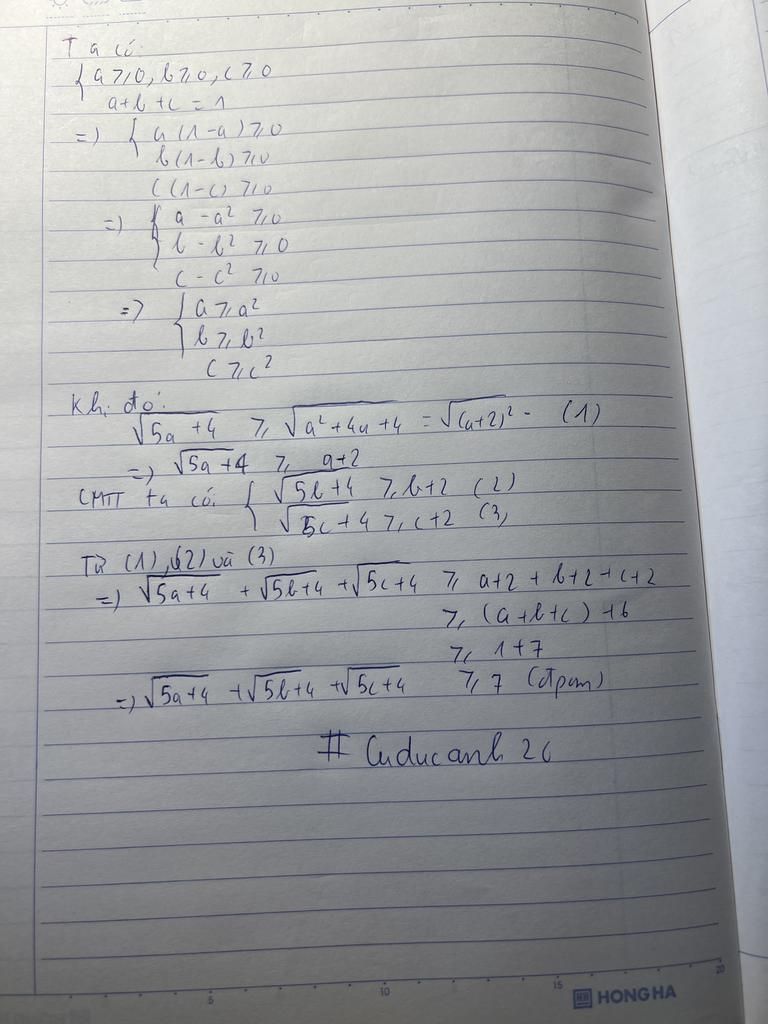 Ta có:
{ a ⩾ 0, b ⩾ 0, c ⩾ 0
a+b+c = 1
=) { a(1-a) ⩾ 0
b(1-b) ⩾ 0
c(1-c) ⩾ 0
=) { a - a² ⩾ 0
b - b² ⩾ 0
c - c² ⩾ 0
=> { a ⩾ a²
b ⩾ b²
c ⩾ c²
Khi đó:
√5a+4 ⩾ √a²+4a+4 = √(a+2)² - (1)
=) √5a+4 ⩾ a+2
CMTT ta có: { √5b+4 ⩾ b+2 (2)
√5c+4 ⩾ c+2 (3)
Từ (1), (2) và (3)
=) √5a+4 + √5b+4 + √5c+4 ⩾ a+2 + b+2 + c+2
⩾ (a+b+c) + 6
⩾ 1+7
=) √5a+4 + √5b+4 + √5c+4 ⩾ 7 (đpcm)
# Cuducanh 26
5 10 15 20
HH HONG HA